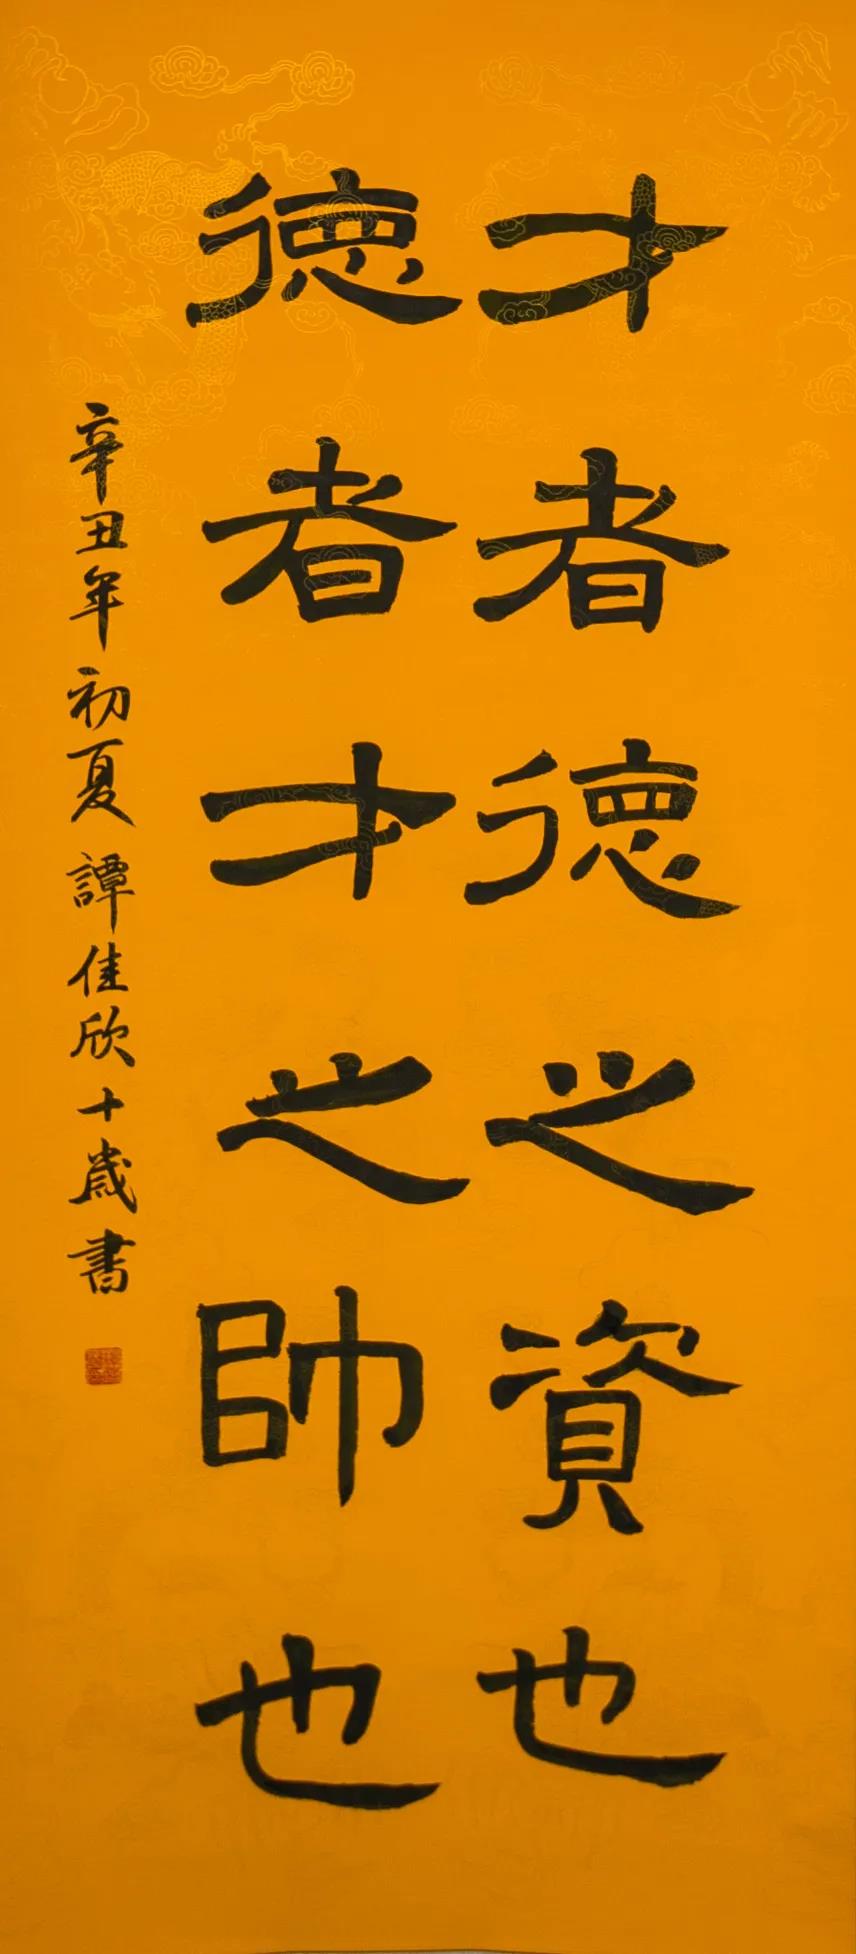 才者德之資也
德者才之帥也
辛丑年初夏譚佳欣十歲書